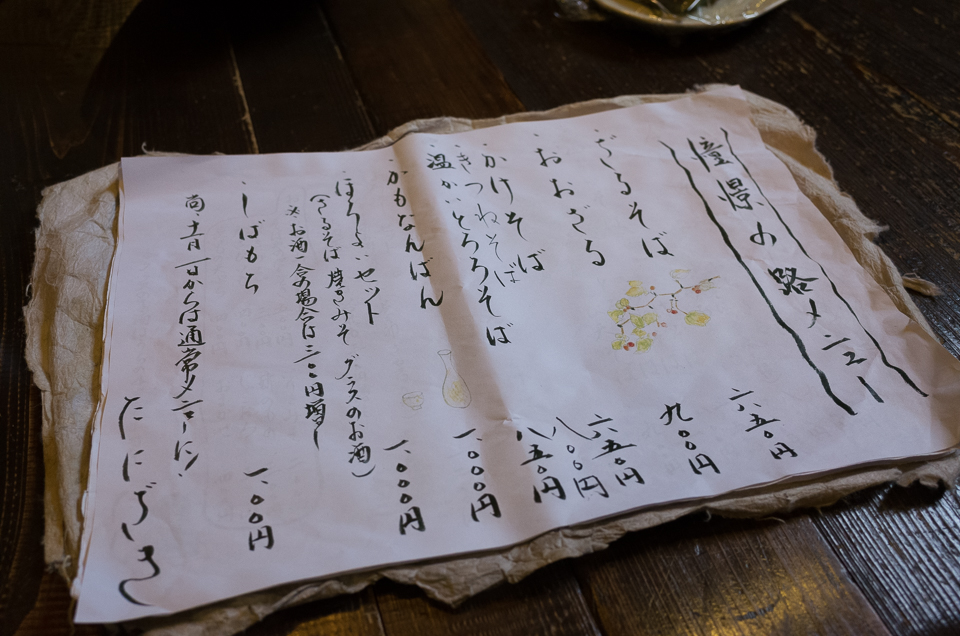 憧憬の路メニュー
・ざるそば 六五〇円
・おおざる 九〇〇円
・かけそば 六五〇円
・きつねそば 八〇〇円
・温かいとろろそば 八五〇円
・かもなんばん 一、〇〇〇円
・ほろよいセット 一、〇〇〇円
(ざるそば 焼きみそ グラスのお酒)
※お酒一合の場合は三〇〇円増し
・しばもち 一〇〇円
尚、十一日一日からは通常メニューに
たにざき